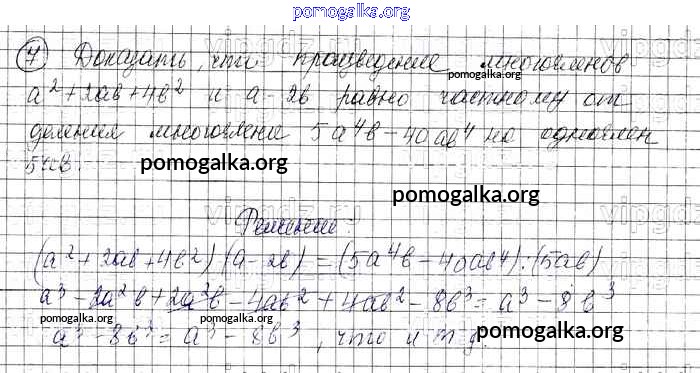 pomogalka.org
7 Доказать, что произведение многочленов
pomogalka.org
a² + 2ab + 4b² и a - 2b равно частному от
деления многочлена 5a⁴b - 40ab⁴ на одночлен
5ab.
pomogalka.org
pomogalka.org
pomogalka.org
Решение:
(a² + 2ab + 4b²)(a - 2b) = (5a⁴b - 40ab⁴):(5ab)
a³ - 2a²b + 2a²b - 4ab² + 4ab² - 8b³ = a³ - 8b³
pomogalka.org pomogalka.org pomogalka.org
a³ - 8b³ = a³ - 8b³, что и т д.